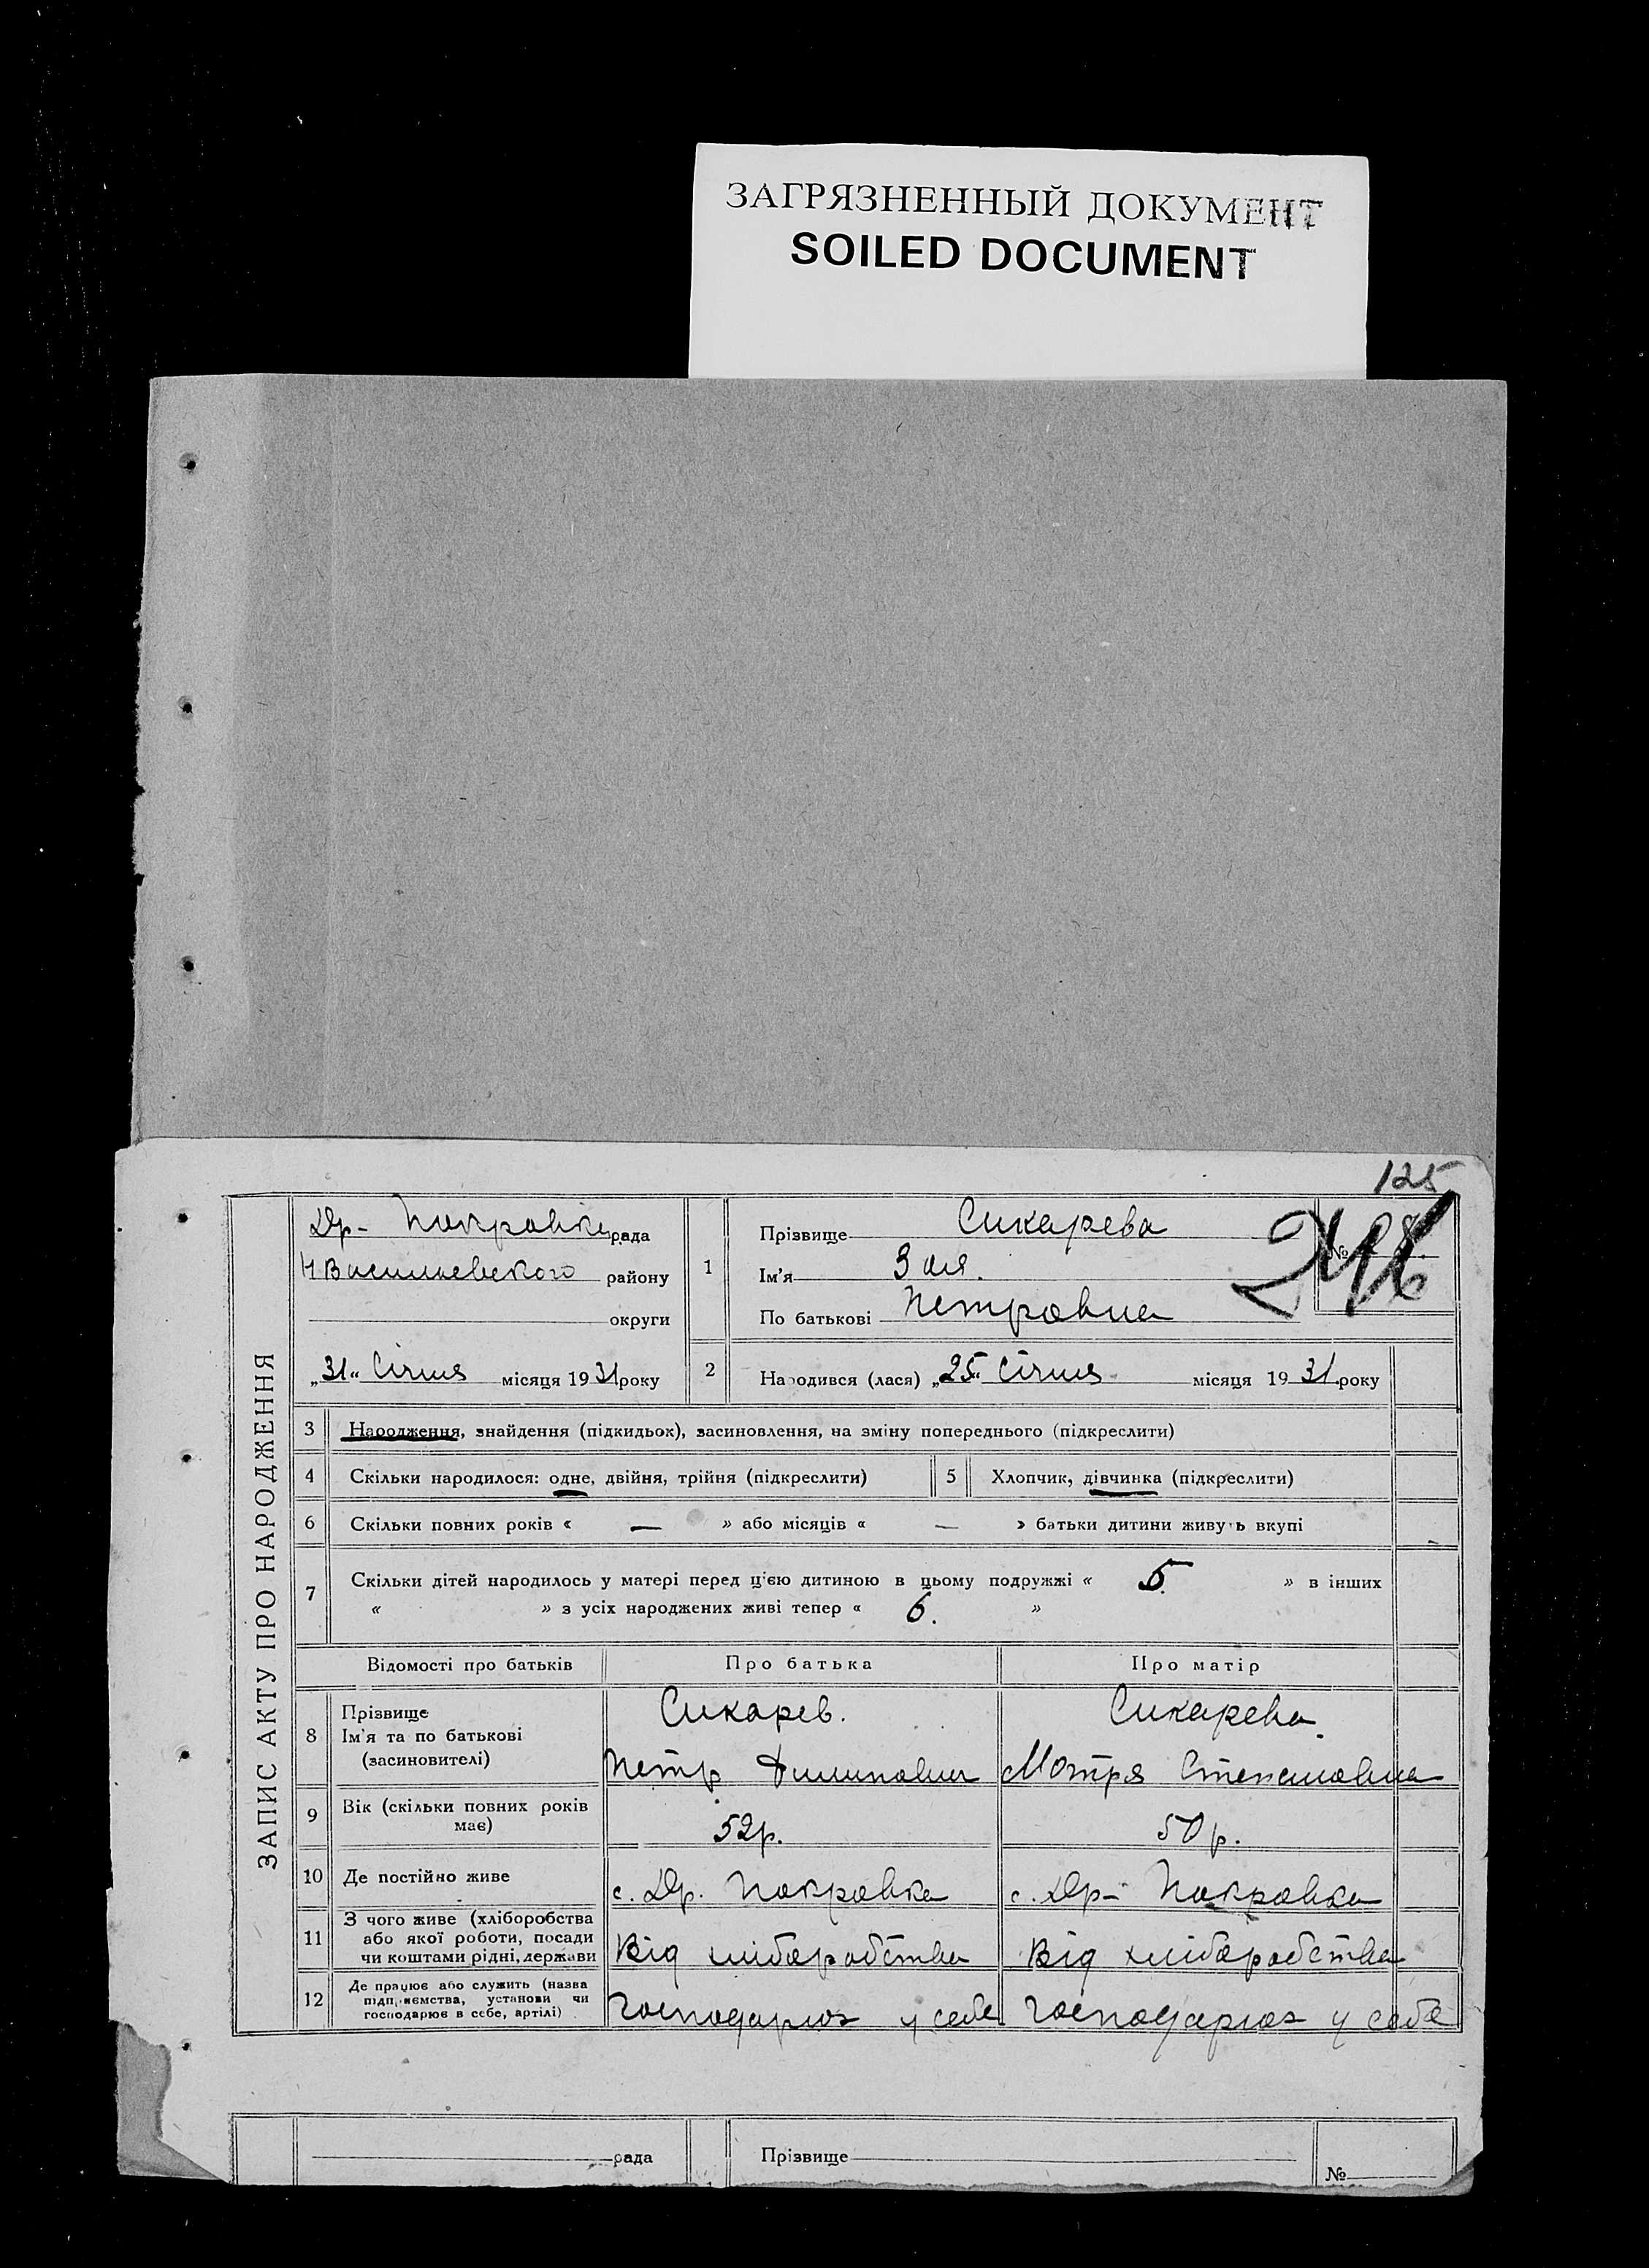 ЗАГРЯЗНЕННЫЙ ДОКУМЕНТ
SOILED DOCUMENT
125
ЗАПИС АКТУ ПРО НАРОДЖЕННЯ
Др- Покровка рада
Н Василиевского району
округи
„31“ Січня місяця 1931 року
1
Прізвище Сикарева
Ім'я Зоя.
По батькові Петровна
№
2
Народився (лася) „25“ Січня місяця 1931 року
3 Народження, знайдення (підкидьок), засиновлення, на зміну попереднього (підкреслити)
4 Скільки народилося: одне, двійня, трійня (підкреслити) 5 Хлопчик, дівчинка (підкреслити)
6 Скільки повних років « — » або місяців « — » батьки дитини живуть вкупі
7 Скільки дітей народилось у матері перед цією дитиною в цьому подружжі « 5. » в інших
« » з усіх народжених живі тепер « 6. »
Відомості про батьків Про батька Про матір
8 Прізвище Сикарев. Сикарева
Ім'я та по батькові
(засиновителі) Петр Филипович Мотря Степановна
9 Вік (скільки повних років має) 52р. 50р.
10 Де постійно живе с. Др. Покровка с. Др- Покровка
11 З чого живе (хліборобства
або якої роботи, посади
чи коштами рідні, держави Від хліборобства Від хліборобства
12 Де працює або служить (назва
підприємства, установи чи
господарює в себе, артілі) Господарює у себе Господарює у себе
рада Прізвище №